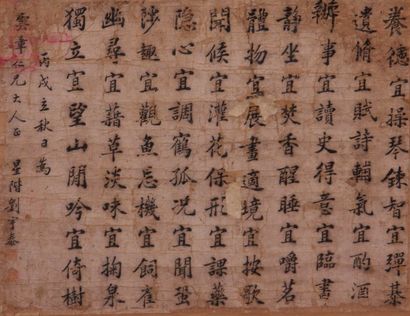 養德宜操琴鍊智宜彈棊
遣情宜賦詩輔氣宜酌酒
辦事宜讀史得意宜臨書
靜坐宜焚香醒睡宜嚼茗
體物宜展畫適境宜按歌
閱候宜灌花保形宜課藥
隱心宜調鶴孤況宜聞蛩
涉趣宜觀魚忘機宜飼雀
幽尋宜藉草淡味宜掬泉
獨立宜望山閒吟宜倚樹
丙戌立秋日為
雲章仁兄大人正
星階劉